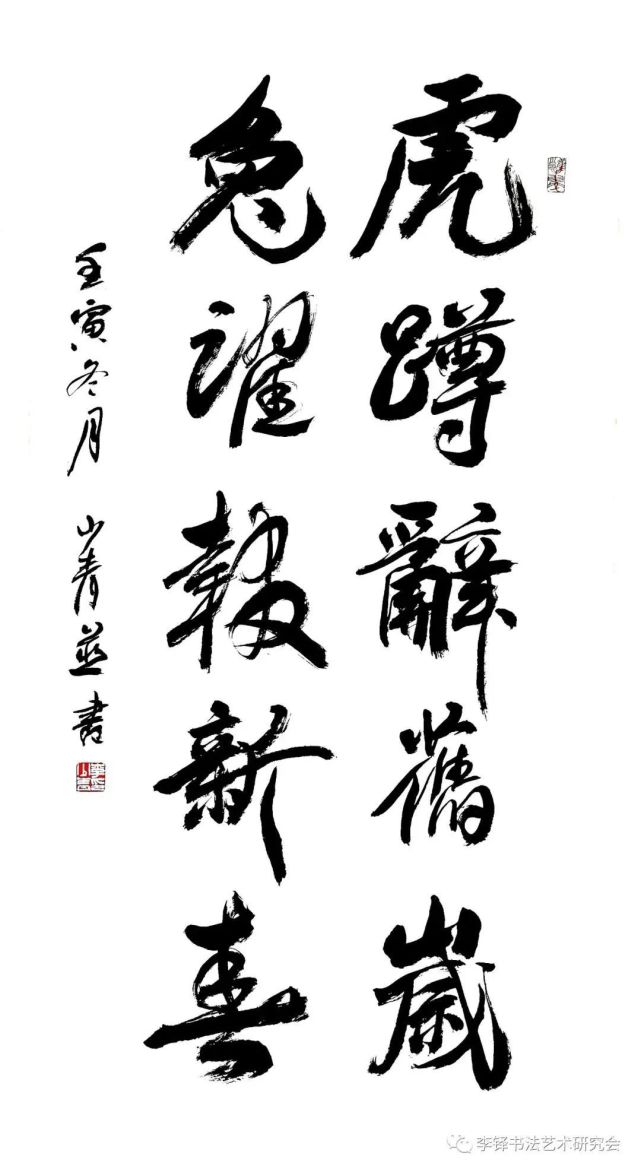 虎蹲辭舊歲
兔躍報新春
壬寅冬月 山青並書
李铎书法艺术研究会